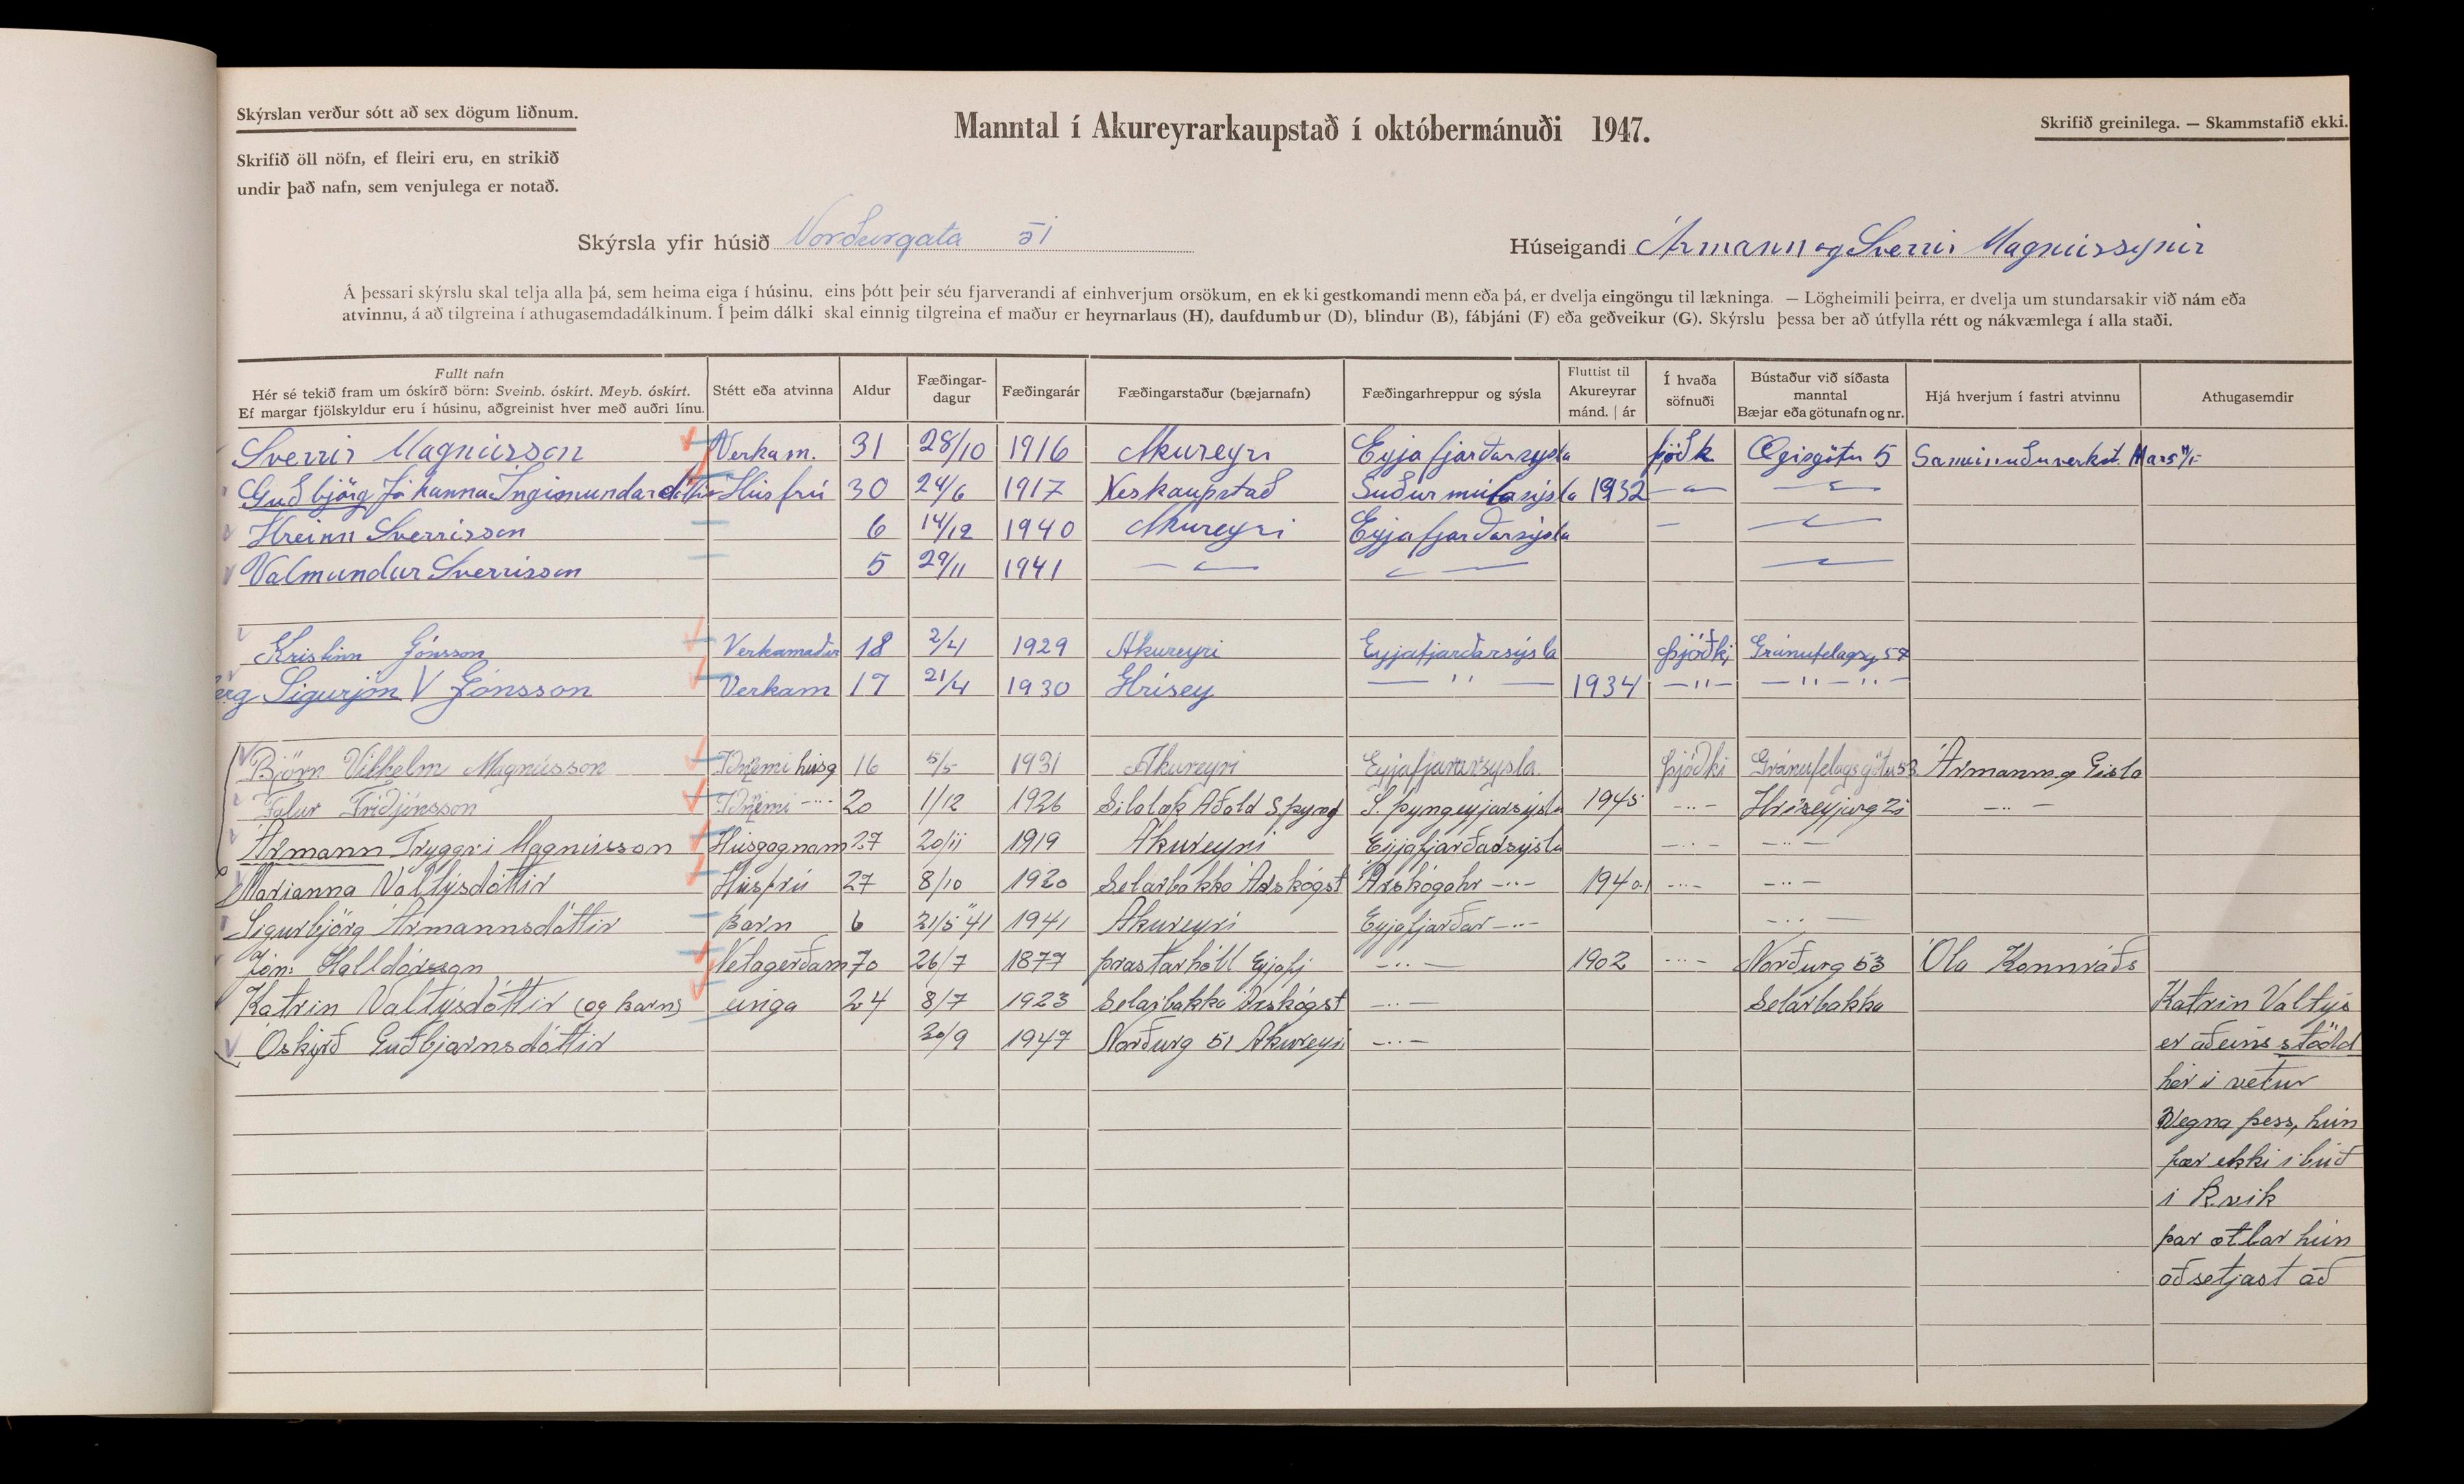 Skýrslan verður sótt að sex dögum liðnum.
Manntal í Akureyrarkaupstað í októbermánuði 1947.
Skrifið greinilega. — Skammstafið ekki.
Skrifið öll nöfn, ef fleiri eru, en strikið
undir það nafn, sem venjulega er notað.
Skýrsla yfir húsið Norðurgata 51
Húseigandi Ármann og Sverrir Magnússynir
Á þessari skýrslu skal telja alla þá, sem heima eiga í húsinu, eins þótt þeir séu fjarverandi af einhverjum orsökum, en ekki gestkomandi menn eða þá, er dvelja eingöngu til lækninga. — Lögheimili þeirra, er dvelja um stundarsakir við nám eða
atvinnu, á að tilgreina í athugasemdadálkinum. Í þeim dálki skal einnig tilgreina ef maður er heyrnarlaus (H), daufdumbur (D), blindur (B), fábjáni (F) eða geðveikur (G). Skýrslu þessa ber að útfylla rétt og nákvæmlega í alla staði.
Fullt nafn Hér sé tekið fram um óskírð börn: Sveinb. óskírt. Meyb. óskírt. Ef margar fjölskyldur eru í húsinu, aðgreinist hver með auðri línu. Stétt eða atvinna Aldur Fæðingar-dagur Fæðingarár Fæðingarstaður (bæjarnafn) Fæðingarhreppur og sýsla Fluttist til Akureyrar mánd. | ár Í hvaða söfnuði Bústaður við síðasta manntal Bæjar eða götunafn og nr. Hjá hverjum í fastri atvinnu Athugasemdir
Sverrir Magnússon Verkam. 31 28/10 1916 Akureyri Eyjafjarðarsýsla þjóðk Ægisgötu 5
Guðbjörg Jóhanna Ingimundardóttir Húsfrú 30 24/6 1917 Neskaupstað Suðurmúlasýsla 1932 — " — — " —
Hreinn Sverrisson 6 14/12 1940 Akureyri Eyjafjarðarsýsla — — " —
Valmundur Sverrisson 5 29/11 1941 — " — — " — — " —
Kristinn Jónsson Verkamaður 18 2/4 1929 Akureyri Eyjafjarðarsýsla þjóðkj Gránufelagsg 57
Sigurjón V Jónsson Verkam 17 21/4 1930 Hrísey — " — 1934 — " — — " — " —
Björn Vilhelm Magnússon Iðnnemi húsg 16 5/5 1931 Akureyri Eyjafjararsysla þjóðki Gránufelagsgötu 53 Ármann og Gisla
Falur Friðjónsson Iðnnemi -"- 20 1/12 1926 Silalæk Aðald S.þyng S. þyngeyjarsýsla 1945 -"- Hriseyjarg 21 -"-
Ármann Tryggvi Magnússon Húsgagnam 27 20/11 1919 Akureyri Eyjafjarðarsýsla -"- -"-
Marianna Valtýsdóttir Húsfrú 27 8/10 1920 Selárbakka Árskógst Árskógahr -"- 1940 -"- -"-
Sigurbjörg Ármannsdóttir Barn 6 21/5 "41 1941 Akureyri Eyjafjarðar -"- -"-
Jón: Halldórsson Netagerðam 70 26/7 1877 þrastarhóll Eyjafj -"- 1902 -"- Norðurg 53 Óla Konnráðs
Katrin Valtýsdóttir (og barn) unga 24 8/7 1923 Selarbakka Árskógst -"- Selárbakka Katrin Valtýs
Óskýrð Guðbjarnsdóttir 20/9 1947 Norðurg 51 Akureyri -"- er aðeins stödd
hér i vetur
Vegna þess, hún
fær ekki i búð
i R.vik
þar ætlar hún
að setjast að